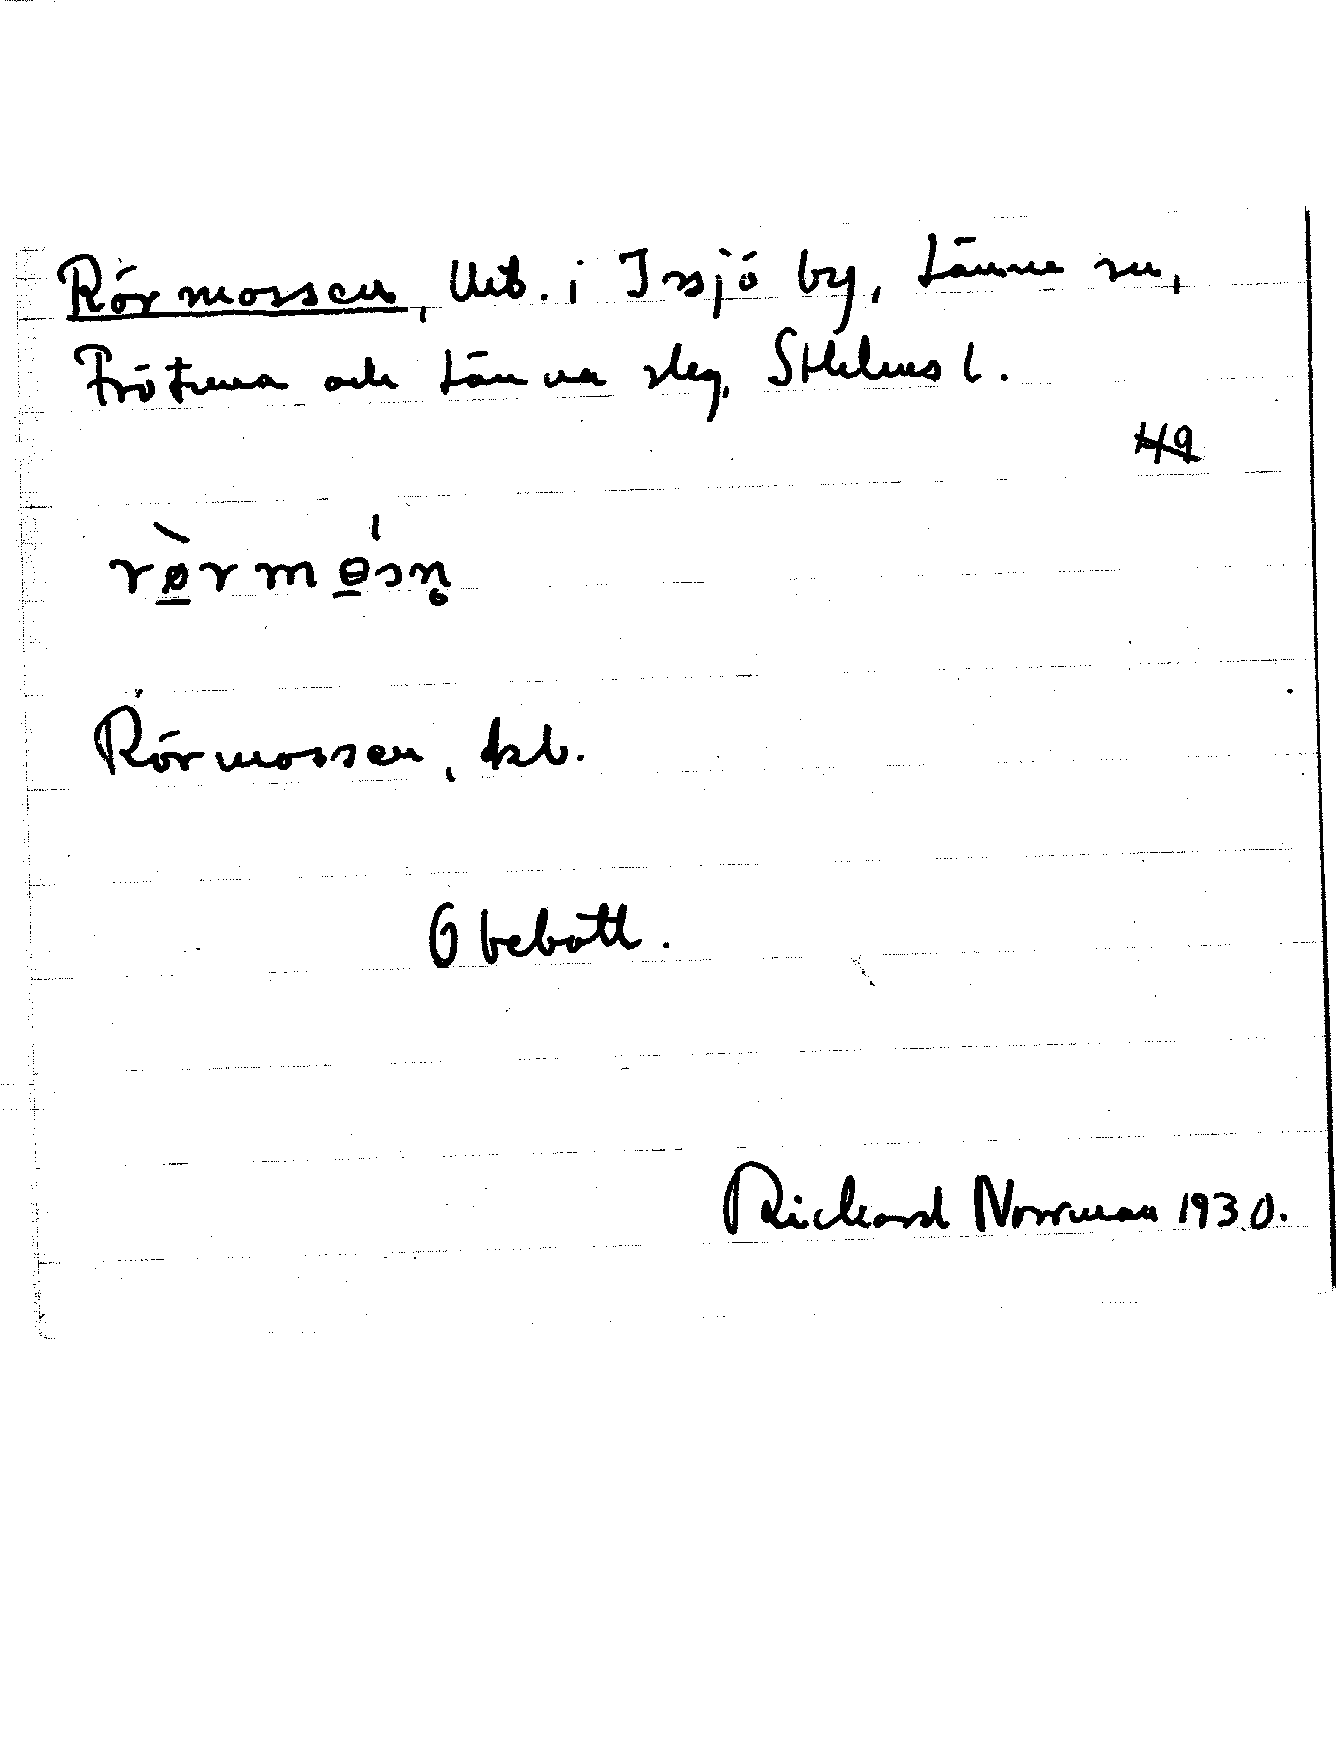 Rörmossen, Utb. i Issjö by, Länna sn,
Frötuna och Länna slg, Sthlms l.
49
rø̀rmɵ́sn̥
Rörmossen, kb.
Obebott.
Rickard Norrman 1930.